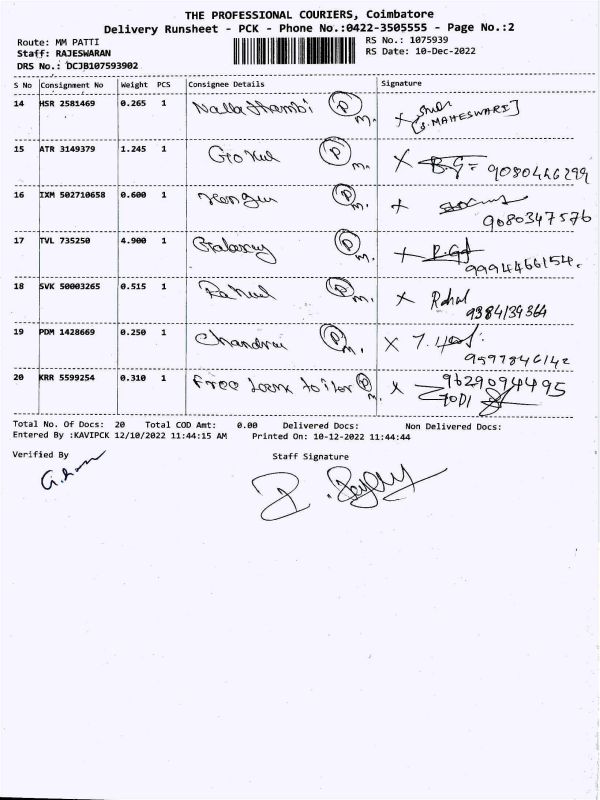 THE PROFESSIONAL COURIERS, Coimbatore
Delivery Runsheet - PCK - Phone No.:0422-3505555 - Page No.:2
Route: MM PATTI RS No.: 1075939
Staff: RAJESWARAN RS Date: 10-Dec-2022
DRS No.: DCJB107593902
S No Consignment No Weight PCS Consignee Details Signature
14 HSR 2581469 0.265 1 Nalla thambi P m. [S.MAHESWARI]
15 ATR 3149379 1.245 1 Gokul P m. X B.G 9080446299
16 IXM 502710658 0.600 1 P m. X 9080347576
17 TVL 735250 4.900 1 P m. X 9994466154.
18 SVK 50003265 0.515 1 Rahul P m. X Rahul 9384139364
19 PDM 1428669 0.250 1 Chandru P m. X 9597846142
20 KRR 5599254 0.310 1 Free P m. X 9629094495
Total No. Of Docs: 20 Total COD Amt: 0.00 Delivered Docs: Non Delivered Docs:
Entered By :KAVIPCK 12/10/2022 11:44:15 AM Printed On: 10-12-2022 11:44:44
Verified By Staff Signature